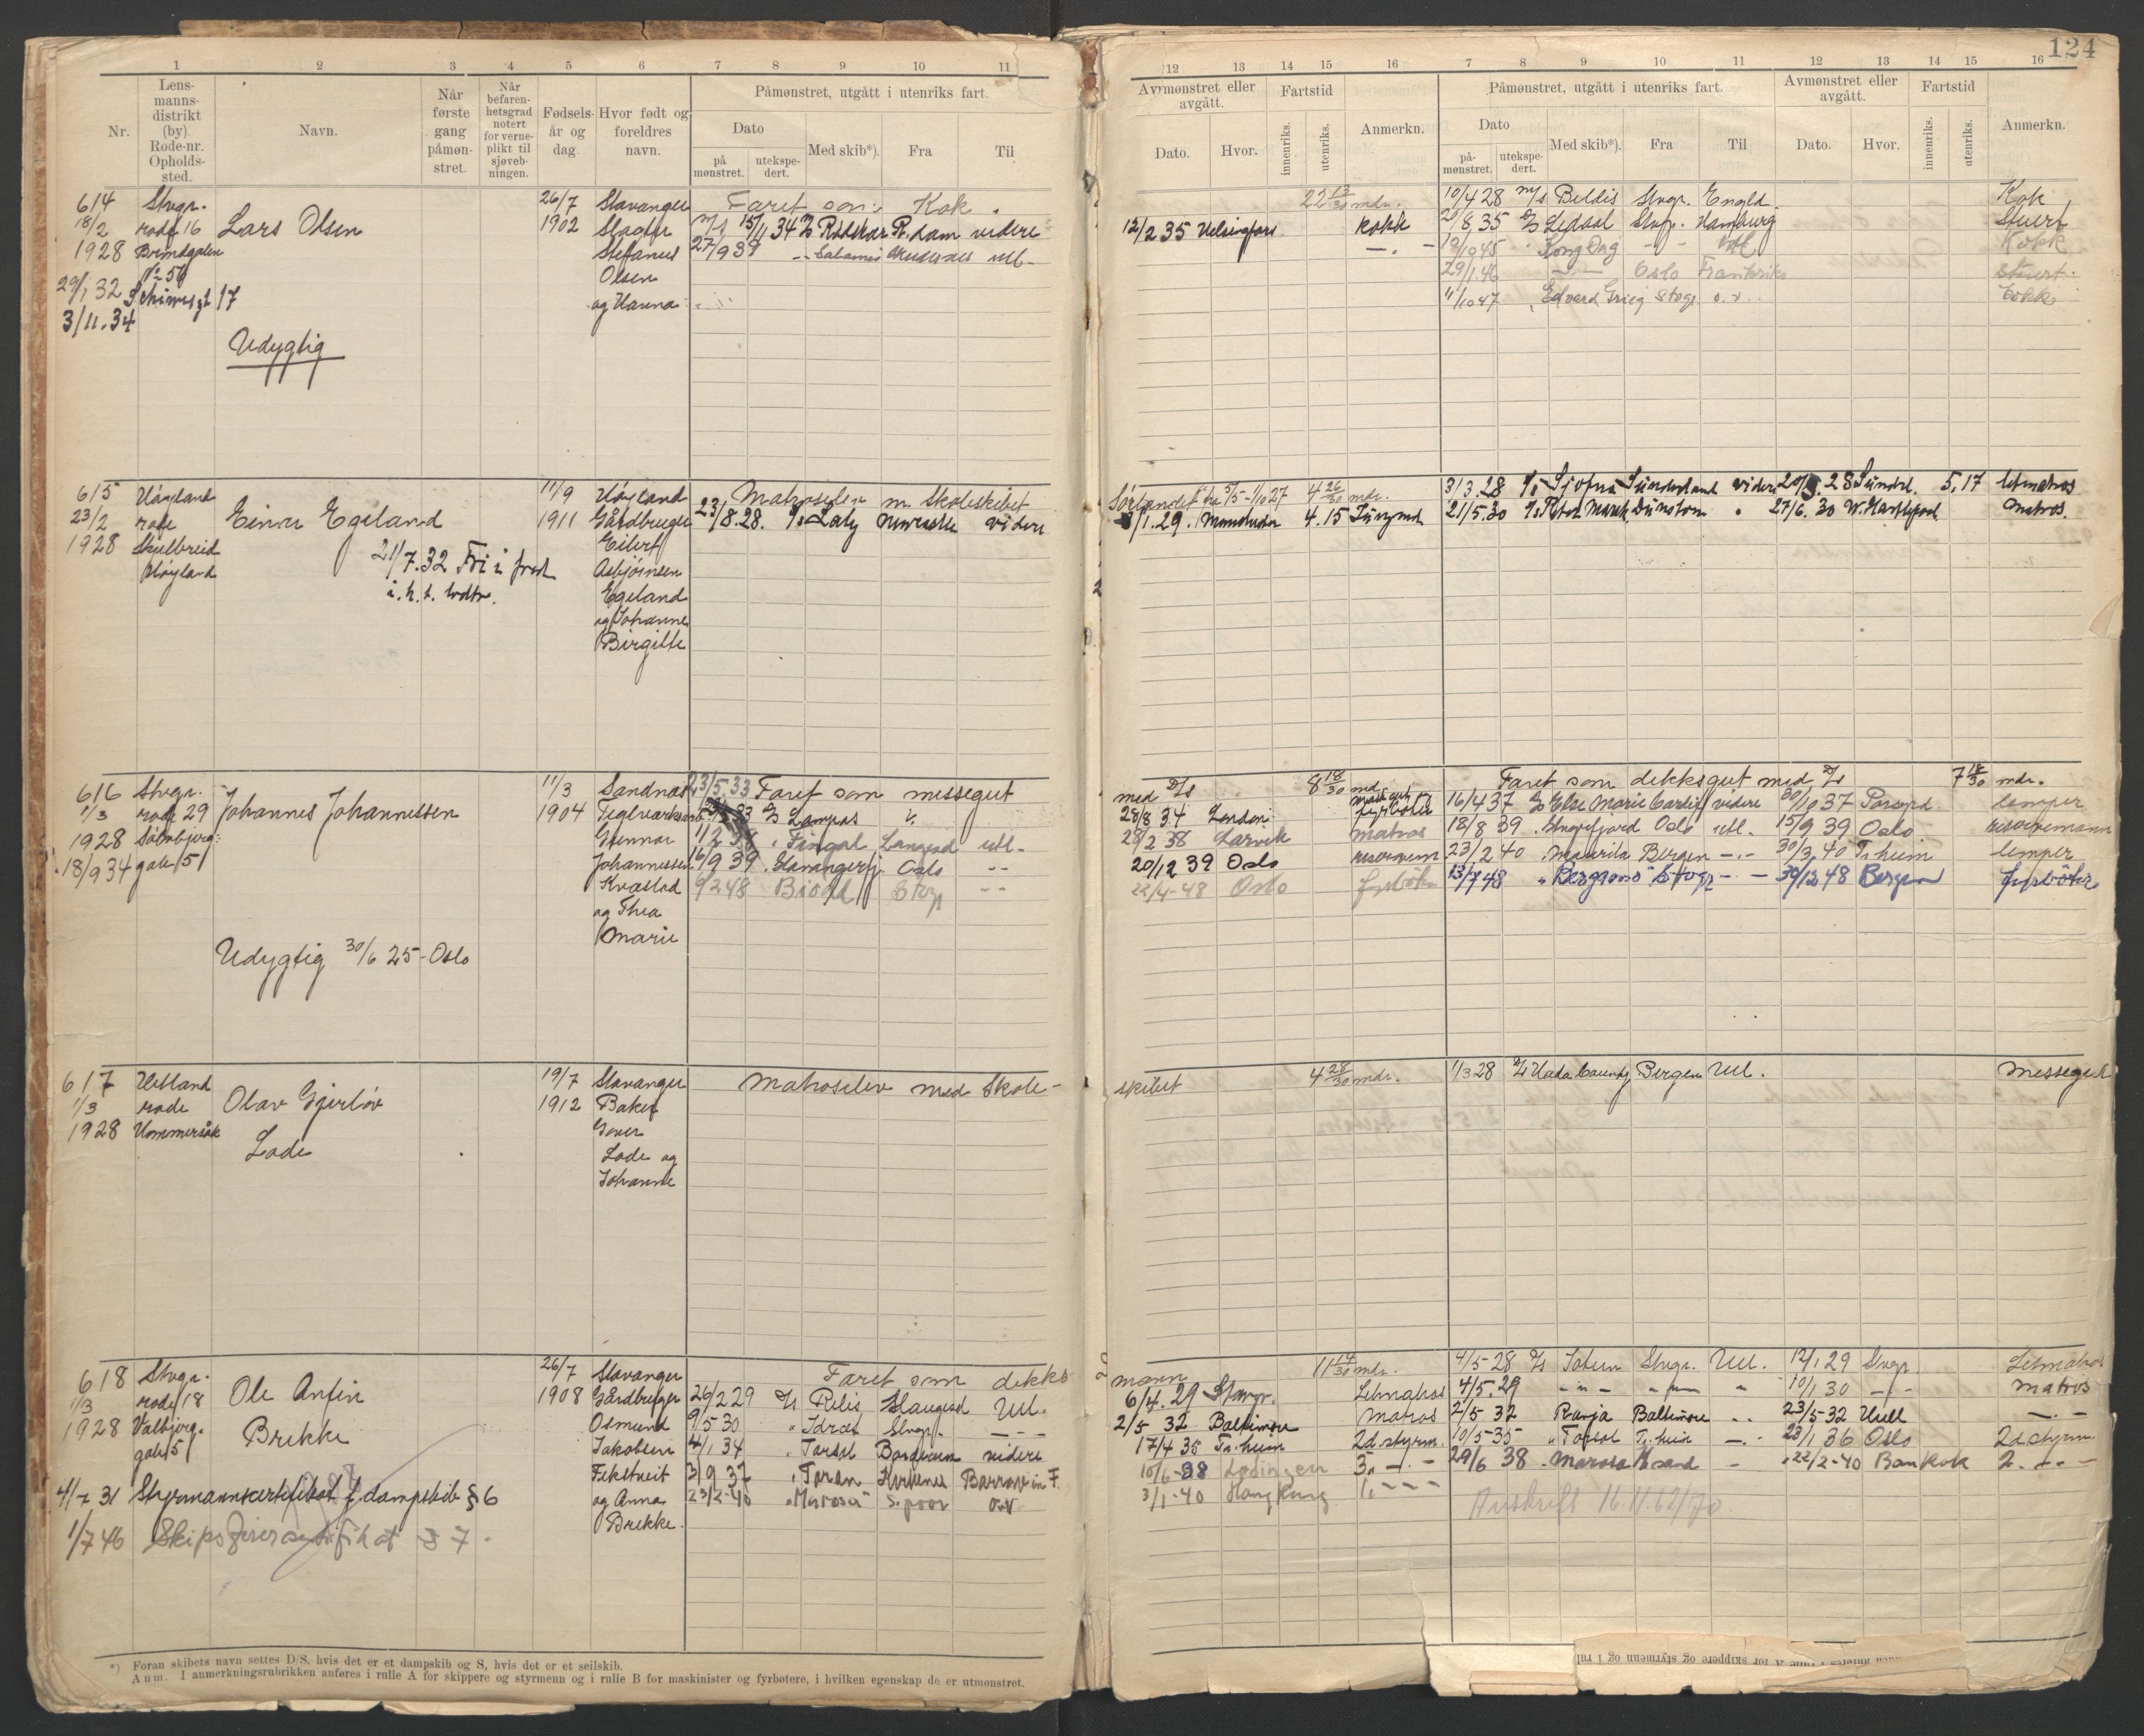 124
1 2 3 4 5 6 7 8 9 10 11
12 13 14 15 16 7 8 9 10 11 12 13 14 15 16
Nr.
Lens-
manns-
distrikt
(by)
Rode-nr.
Opholds-
sted.
Navn.
Når
første
gang
påmøn-
stret.
Når
befaren-
hetsgrad
notert
for verne-
plikt til
sjøveb-
ningen.
Fødsels-
år og
dag
Hvor født og
foreldres
navn.
Påmønstret, utgått i utenriks fart.
Dato
på
mønstret.
utekspe-
dert.
Med skib*).
Fra
Til
Avmønstret eller
avgått.
Dato.
Hvor.
Fartstid
innenriks.
utenriks.
Anmerkn.
Påmønstret, utgått i utenriks fart.
Dato
på-
mønstret.
utekspe-
dert.
Med skib*).
Fra
Til
Avmønstret eller
avgått.
Dato.
Hvor.
Fartstid
innenriks.
utenriks.
Anmerkn.
614
18/2
1928
29/1 32
3/11.34
Stvgr.
rode 16
No 54
17
Lars Olsen
Udygtig
26/7
1902
Stavanger
Slagter
Stefanus
Olsen
og Hanna
Faret som Kok.
M/s 15/11 34 Rødskar R.dam videre
27/9 38
22 13/30 mdr.
12/2 35 Helsingfors kokk
10/4 28 M/s Beldis Stvgr. Engld. Kok
20/8 35 Ledaal Stvgr. Hamburg Stuert
Kong Dag Kokk
29/1 46 Oslo Frankrike Stuert.
11/10 47 Edvard Grieg Stvgr Kokk
615
23/2
1928
Høyland
rode
Skjelbreid
Høyland
Einar Egeland
21/7.32 Fri i fred
11/9
1911
Høyland
Gårdbruger
Eilert
Asbjørnsen
Egeland
og Johanne
Birgitte
Matroselev m. Skoleskibet
23/8.28. Laly Newcastle videre
Sørlandet fra 5/5 - 1/10 27 4 26/30 mdr.
/1.29. Manchester 4.15 Jungmd
31/3.28 Sjofna Sunderland videre 28 Sunderl. 5,17 letmatros
21/5.30 Dunston 27/6.30 W. Hartlepool matros.
616
1/3
1928
18/9 34
Stvgr.
rode 29
gate 5
Johannes Johannessen
Udygtig 30/6 25 - Oslo
11/3
1904
Sandnes
Teglverksarb.
Gunnar
Johannessen
Kvæstad
og Thea
Marie
23/5.33 Faret som messegut
Lampas v.
Fingal Langesd utl-
16/9 39 Stavangerfj. Oslo --
9/2 48 Biørn Stvgr --
med D/s 8 18/30 md
28/8 34 London
28/2 38 Larvik matros
20/12 39 Oslo reservem
22/4-48 Oslo fyrbøter
Faret som dekksgut med D/s 7 18/30 mdr.
16/4 37 Else Marie Cardiff videre 30/10 37 Porsgrd lemper
18/8 39 Stvgrfjord Oslo utl. 15/9 39 Oslo reservemann
23/2 40 Maurita Bergen -.- 30/3 40 Tr.heim lemper
13/7 48 Stvgr - - 30/12 48 Bergen fyrbøter
617
1/3
1928
Hetland
rode
Hommersåk
Olav Gjerløv
Lode
19/7
1912
Stavanger
Baker
Gover
Lode og
Johanne
Matroselev med Skole-
skibet 4 28/30 mdr.
1/3 28 Hada County Bergen Utl. Messegut
618
1/3
1928
Stvgr.
rode 18
Valbjerg.
gate 5
Ole Anfin
Brekke
4/7 31 Styrmannscertifikat f. dampskib § 6
1/7 46 Skipsførersertifikat § 7.
26/7
1908
Stavanger
Gårdbruger
Osmund
Jakobsen
Fikstveit
og Anna
Brekke.
Faret som dekks
26/2 29 D/s Rilis Haugesd Utl.
9/5 30 Idræt Stvgr. - - -
4/1 34 Torsel videre
3/9 37 Toran Kirkenes Barrow in F.
23/2-40 "Marosa" S.poor o.v
mann 11 14/30 mdr.
6/4.29 Stavgr. Letmatros
2/5 32 Baltimore matros
17/4 35 Tr.heim 2d.styrm.
10/6-38 Lødingen 3. - . -
3/1-40 Hong Kong 1. - - -
4/5-28 D/s Stvgr. Utl. 12/1 29 Svgr. Letmatros
4/5.29 - " - - " - " 10/1 30 - - - matros
2/5 32 Ranja Baltimore .. 23/5-32 Hull -.-
10/5-35 Torsel Tr.heim -.- 23/1 36 Oslo 2d styrm.
29/6 38 Marosa Kr.sand - 22/2-40 Bankok 2. -.-
Avskrift 16.11.62/70
*) Foran skibets navn settes D/S, hvis det er et dampskib og S, hvis det er et seilskib.
Anm. I anmerkningsrubrikken anføres i rulle A for skippere og styrmenn og i rulle B for maskinister og fyrbøtere, i hvilken egenskap de er utmønstret.